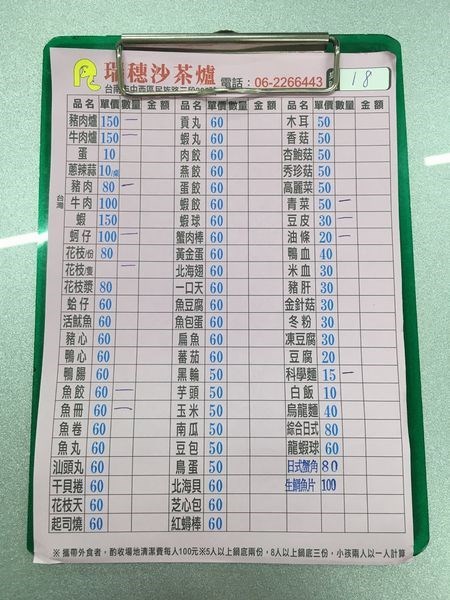 瑞穗沙茶爐 電話：06-2266443 18
台南市中西區民族路二段
品名 單價 數量 金額 品名 單價 數量 金額 品名 單價 數量 金額
豬肉爐 150 一 貢丸 60 木耳 50
牛肉爐 150 一 蝦丸 60 香菇 50
蛋 10 肉餃 60 杏鮑菇 50
蔥辣蒜 10/桌 燕餃 60 秀珍菇 50
豬肉 80 一 蛋餃 60 高麗菜 50
台灣 牛肉 100 蝦餃 60 青菜 50 一
蝦 150 蝦球 60 豆皮 30 一
蚵仔 100 一 蟹肉棒 60 油條 20 一
花枝/份 80 黃金蛋 60 鴨血 40
花枝/隻 一 北海翅 60 米血 30
花枝漿 80 一口天 60 豬肝 30
蛤仔 60 魚豆腐 60 金針菇 30
活魷魚 60 魚包蛋 60 冬粉 30
豬心 60 扁魚 60 凍豆腐 30
鴨心 60 蕃茄 60 豆腐 20
鴨腸 60 黑輪 50 科學麵 15 一
魚餃 60 一 芋頭 50 白飯 10
魚冊 60 一 玉米 50 烏龍麵 40
魚卷 60 南瓜 50 綜合日式 80
魚丸 60 豆包 50 龍蝦球 60
汕頭丸 60 鳥蛋 50 日式蟹角 80
干貝捲 60 北海貝 60 生鯛魚片 100
花枝天 60 芝心包 60
起司燒 60 紅蟳棒 60
※攜帶外食者，酌收場地清潔費每人100元※5人以上鍋底兩份，8人以上鍋底三份，小孩兩人以一人計算